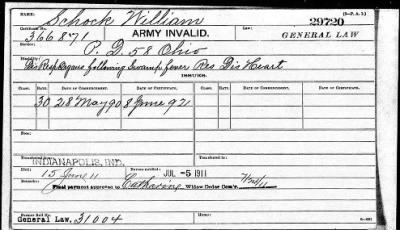 Schock William
(3-P.A.1)
29720
Certificate No. 366871
ARMY INVALID.
GENERAL LAW
Service: P. D. 58 Ohio
Disability: Dis Resp Organs following Swamp fever Res Dis Heart
Class. Rate. Date of Commencement. Date of Certificate. Class. Rate. Date of Commencement. Date of Certificate.
30 28 May 90 8 June 92
INDIANAPOLIS, IND.
Died: 15 June 11
JUL -5 1911
Final payment approved to Catharine Widow
Former Roll No.
General Law, 31004